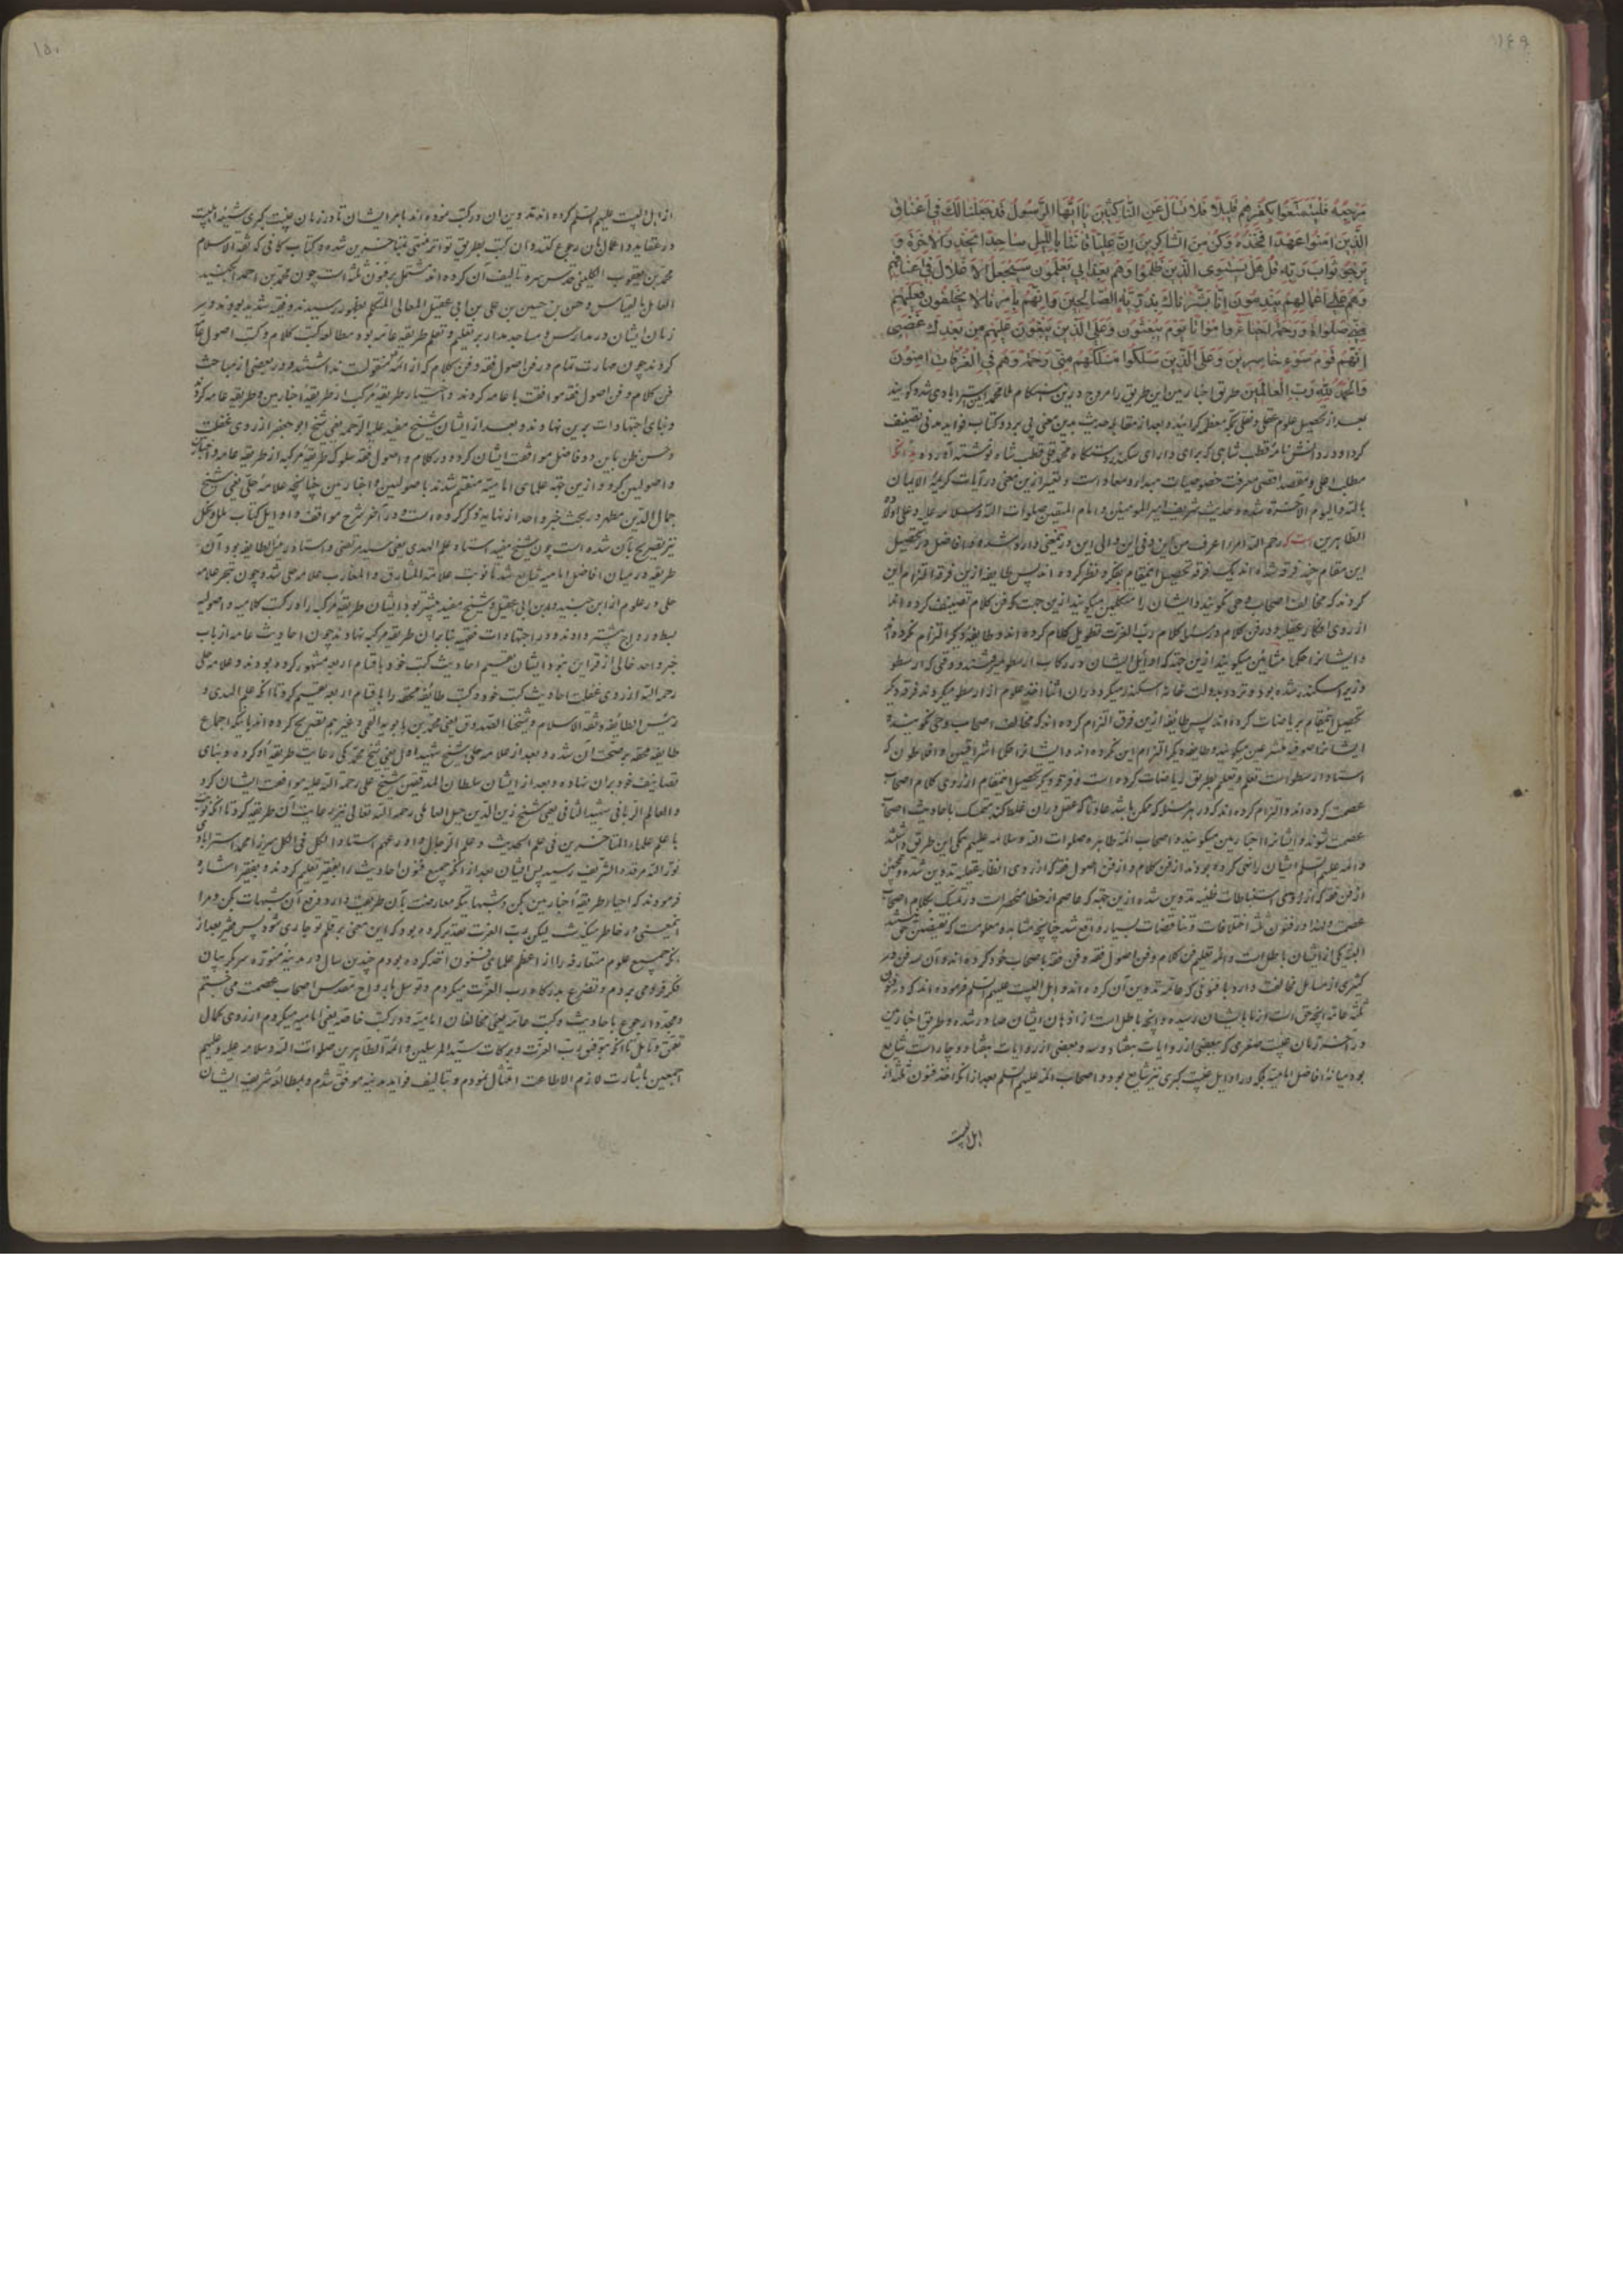 ۱۴۹
مرجعه فليتمتعوا بكفرهم قليلا فلا تسأل عن الناكثين يا ايها الرسول قد جعلنا لك في اعناق
الذين امنوا عهدا فخذه وكن من الشاكرين ان عليا قانتا بالليل ساجدا يحذر الاخرة و
يرجو ثواب ربه قل هل يستوى الذين ظلموا وهم بعذابي يعلمون سيجعل الاغلال في اعناقهم
وهم على اعمالهم يندمون انا بشرناك بذريته الصالحين وانهم لامرنا لا يخلفون فعليهم
منى صلواة ورحمة احياء وامواتا يوم يبعثون وعلى الذين يبغون عليهم من بعدك غضبى
انهم قوم سوء خاسرين وعلى الذين سلكوا مسلكهم منى رحمة وهم في الغرفات امنون
والحمد لله رب العالمين طريق اخبارين اين طريق را مروج درين هنكام ملا محمد امين استرابادى شد كويند
بعد از تحصيل علوم عقلى و نقلى بمكه معظمه كرائيد و بعد از مقابله حديث بدين معنى پى برد و كتاب فوايد مدنى تصنيف
كرد و در دانش نامه قطب شاهى كه براى داراى سكندر دستگاه محمد قلى قطب شاه نوشته آورده
مطلب اعلى و مقصد اقصى معرفت خصوصيات مبدأ و معاد است و تعبير ازين معنى در آيات كريمه الايمان
بالله و اليوم الآخر شده و حديث شريف امير المؤمنين و امام المتقين صلوات الله و سلامه عليه و على اولاده
الطاهرين رحم الله امرا عرف من اين و فى اين و الى اين درين معنى وارد شده و افاضل در تحصيل
اين مقام چند فرقه شده اند يك فرقه تحصيل اينمقام بفكر و نظر كرده اند پس طايفه ازين فرقه التزام اين
كردند كه مخالف اصحاب وحى نگويند و ايشان را متكلمين ميكويند ازين جهت كه فن كلام تصنيف كرده اند
از روى افكار عقليه و در فن كلام در مسئله كلام رب العزت تطويل كلام كرده اند و طايفه ديگر التزام نكرده اند
و ايشانرا حكماء مشائين ميكويند ازين جهت كه اوائل ايشان در ركاب ارسطو ميرفتند و وقتى كه ارسطو
وزير اسكندر شده بود و تردد بدولت خانه اسكندر ميكرد و در آن اثنا اخذ علوم از ارسطو ميكردند فرقه ديگر
تحصيل اينمقام برياضات كرده اند پس طايفه ازين فرق التزام كرده اند كه مخالف اصحاب وحى نگويند
ايشانرا صوفيه متشرعين ميكويند و طايفه ديگر التزام اين نكرده اند و ايشانرا حكماء اشراقيين و افلاطون كه
استاد ارسطو است تعلم و تعليم بطريق رياضات كرده است و فرقه ديگر تحصيل اينمقام از روى كلام اصحاب
عصمت كرده اند و التزام كرده اند كه در هر مسئله كه ممكن باشد عادتا كه عقل در ان غلط كند متمسك باحاديث اصحاب
عصمت شوند و ايشانرا اخبارين ميكويند و اصحاب ائمه طاهره صلوات الله و سلامه عليهم همكى اين طريق داشتند
و ائمه عليهم السلم ايشان را نهى كرده بودند از فن كلام و از فن اصول فقه كه از روى انظار عقليه تدوين شده و همچنين
از فن فقه كه از روى استنباطات ظنيه تدوين شده ازين جهة كه عاصم از خطا منحصر است در تمسك بكلام اصحاب
عصمت و لهذا در فنون ثلثه اختلافات و تناقضات بسيار واقع شد چنانچه مشاهده و معلومست كه نقيضين حق نميباشد
البته يكى ازيشان باطل است و ائمه تعليم فن كلام و فن اصول فقه و فن فقه باصحاب خود كرده اند و آن سه فن در
كثيرى از مسائل مخالفت دارد با فنونى كه عامه تدوين آن كرده اند و اهل البيت عليهم السلم فرموده اند كه در فنون
ثلثه عامه آنچه حق است از ما بايشان رسيده و آنچه باطل است از اذهان ايشان صادر شده و طريق اخبارين
در آخر زمان غيبت صغرى كه ببعضى از روايات هفتاد و سه و بعضى از روايات هفتاد و چهار است شايع
بود ميانه افاضل اماميه بلكه در اوايل غيبت كبرى نيز شايع بود و اصحاب ائمه عليهم السلم بعد از انكه اخذ فنون ثلثه از
اهل البيت
۱۵۰
از اهل البيت عليهم السلم كرده اند تدوين ان در كتب نموده اند بامر ايشان تا در زمان غيبت كبرى شيعه اهل بيت
در عقايد و اعمال بان رجوع كنند و ان كتب بطريق تواتر منتهى بمتاخرين شده و كتاب كافى كه ثقة الاسلام
محمد بن يعقوب الكلينى قدس سره تاليف آن كرده اند مشتمل بر فنون ثلثه است چون محمد بن احمد الجنيد
العامل بالقياس و حسن بن حسين بن على بن ابى عقيل العمانى المتكلم بظهور رسيدند و تقيه شديد بود و در
زمان ايشان در مدارس و مساجد مدار بر تعليم و تعلم طريقه عامه بود مطالعه كتب كلام و كتب اصول عامه
كردند چون مهارت تمام در فن اصول فقه و فن كلام كه از ائمه منقولست نداشتند در بعضى از مباحث
فن كلام و فن اصول فقه موافقت با عامه كردند و اختيار طريقه مركب از طريقه اخبارين و طريقه عامه كردند
و بناى اجتهادات برين نهادند و بعد از ايشان شيخ مفيد عليه الرحمه يعنى شيخ ابو جعفر از روى غفلت
و حسن ظن باين دو فاضل موافقت ايشان كرد و در كلام و اصول فقه سلوك طريقه مركبه از طريقه عامه و اخبارين
و اصولين كرد و ازين جهة علماى اماميه منقسم شدند باصولين و اخبارين چنانچه علامه حلى يعنى شيخ
جمال الدين مطهر در بحث خبر واحد از نهايه ذكر كرده است و در آخر شرح مواقف و اوايل كتاب ملل و نحل
نيز تصريح بآن شده است چون شيخ مفيد استاد علم الهدى يعنى سيد مرتضى و استاد رئيس الطايفه بود آن
طريقه در ميان افاضل اماميه شايع شد تا نوبت علامة المشارق و المغارب علامه حلى شد و چون تبحر علامه
حلى در علوم از ابن جنيد و ابن ابى عقيل و شيخ مفيد بيشتر بود ايشان طريقه مركبه را در كتب كلاميه و اصوليه
بسط و رواج بيشتر دادند و در اجتهادات فقهيه بنا بران طريقه مركبه نهادند چون احاديث عامه از باب
خبر واحد خالى از قراين بود ايشان تقسيم احاديث كتب خود باقسام اربعه مشهور كرده بودند و علامه حلى
رحمه الله از روى غفلت احاديث كتب خود و كتب طائفه محقه را باقسام اربعه تقسيم كرد تا انكه علم الهدى و
رئيس الطائفه و ثقة الاسلام و شيخنا الصدوق يعنى محمد بن بابويه القمى و غيرهم تصريح كرده اند بانكه اجماع
طايفه محقه بر صحت آن شده و بعد از علامه حلى شيخ شهيد اول يعنى شيخ محمد مكى رعايت طريقه او كرده و بناى
تصانيف خود بران نهاده و بعد از ايشان سلطان المدققين شيخ على رحمة الله عليه موافقت ايشان كرد
و العالم الربانى شهيد الثانى يعنى شيخ زين الدين جبل العاملى رحمه الله تعالى نيز رعايت آن طريقه كرد تا انكه نوبت
با علم علماء المتاخرين فى علم الحديث و علم الرجال و اورعهم استاد الكل فى الكل ميرزا محمد استرابادى
نور الله مرقده الشريف رسيد پس ايشان بعد از انكه جميع فنون احاديث را بفقير تعليم كردند و بفقير اشاره
فرمودند كه احياء طريقه اخبارين بكن و شبهاتيكه معارضت بآن طريقت دارد رفع آن شبهات بكن و مرا
اينمعنى در خاطر ميگذشت ليكن رب العزت تقدير كرده بود كه اين معنى بر قلم تو جارى شود پس فقير بعد از
انكه جميع علوم متعارفه را از اعظم علماى فنون اخذ كرده بودم چندين سال در مدينه منوره سر بگريبان
فكر فرو مى بردم و تضرع بدرگاه رب العزت ميكردم و توسل بارواح مقدس اصحاب عصمت مى جستم
و مجددا رجوع باحاديث و كتب عامه يعنى مخالفان اماميه و در كتب خاصه يعنى اماميه ميكردم از روى كمال
تعمق و تامل تا انكه بتوفيق رب العزت و بركات سيد المرسلين و ائمة الطاهرين صلوات الله و سلامه عليه و عليهم
اجمعين باشارت لازم الاطاعت امتثال نمودم و بتاليف فوايد مدنيه موفق شدم و بمطالعه شريف ايشان